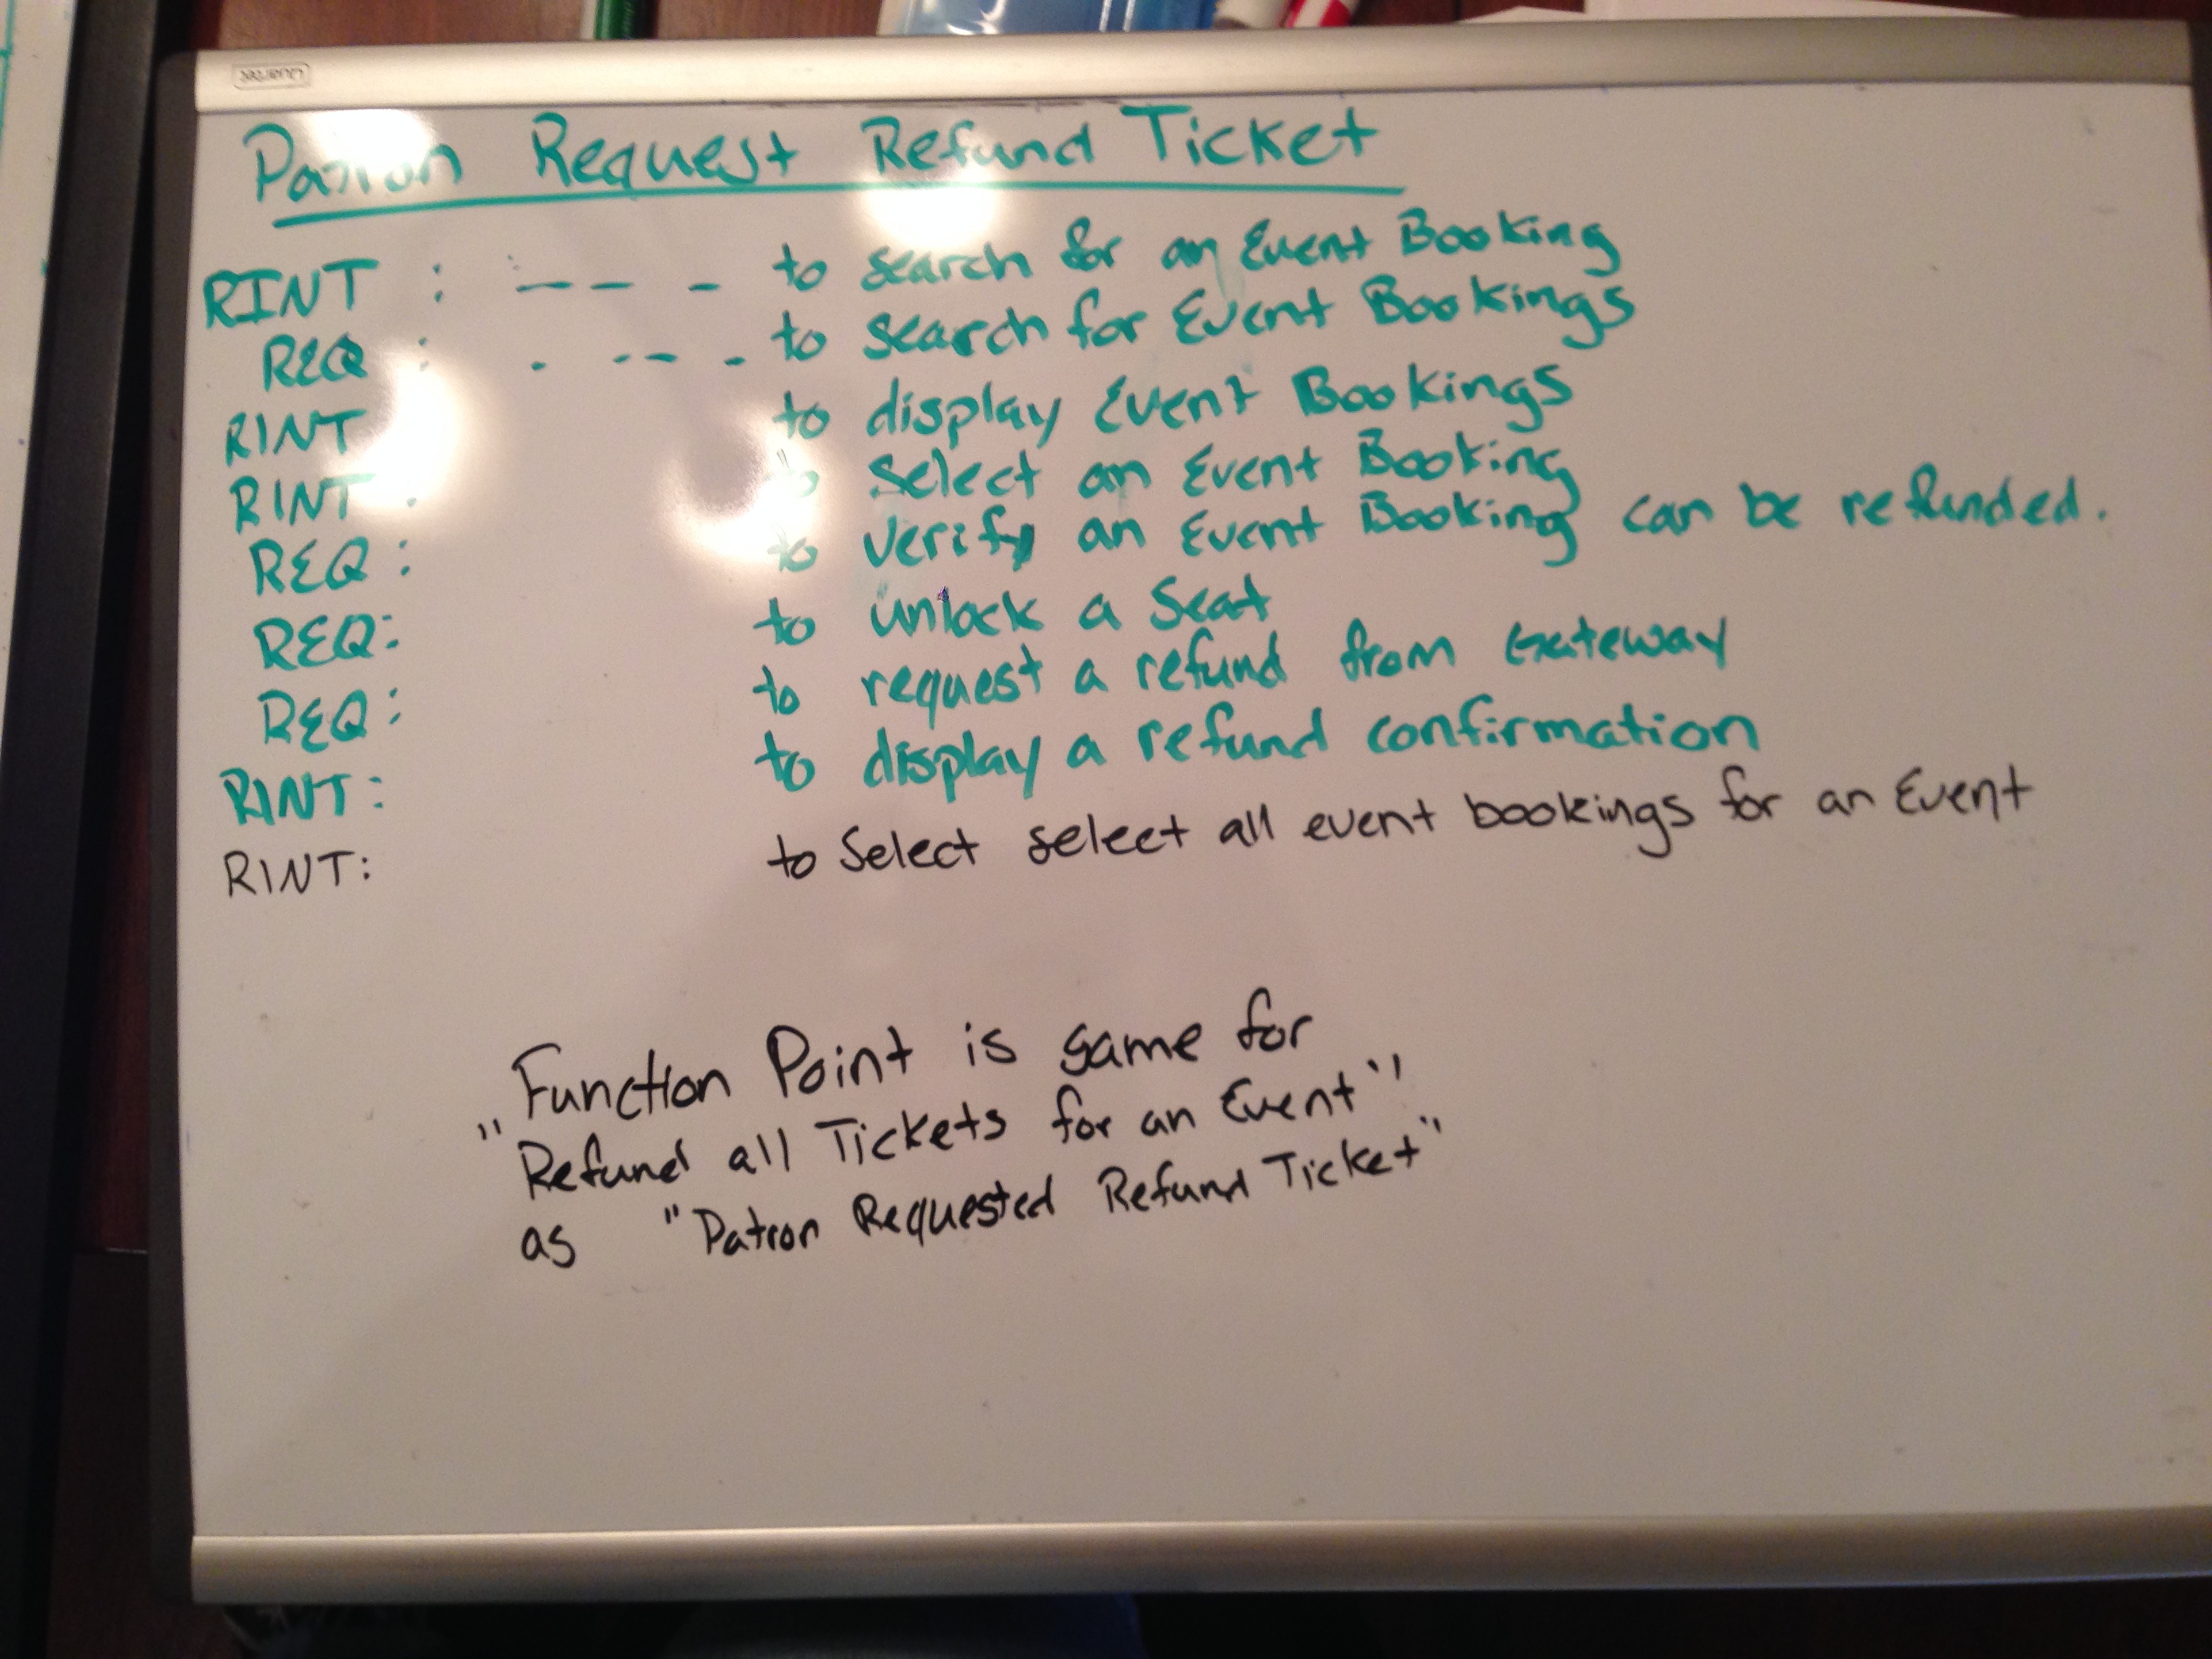 Quartet
Patron Request Refund Ticket
RINT : -- - to search for an Event Booking
REQ : . -- - to search for Event Bookings
RINT to display Event Bookings
RINT : to select an Event Booking
REQ : to verify an Event Booking can be refunded.
REQ: to unlock a Seat
REQ: to request a refund from Gateway
RINT: to display a refund confirmation
RINT: to Select select all event bookings for an Event
Function Point is same for
"Refund all Tickets for an Event"
as "Patron Requested Refund Ticket"